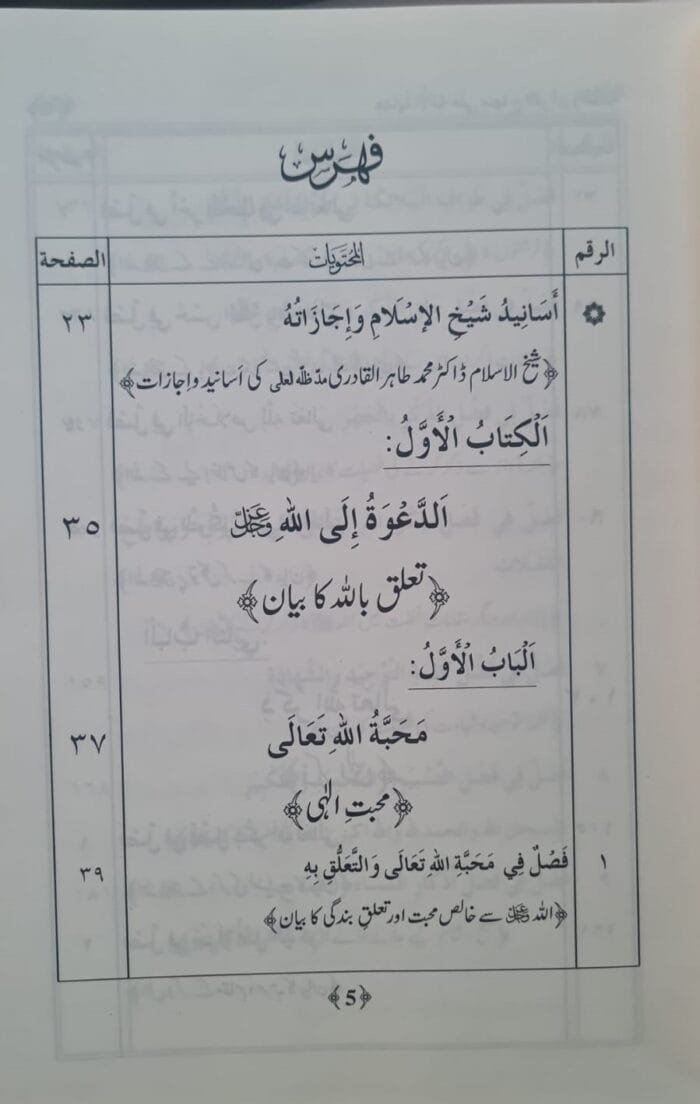 فهرس
الرقم المحتويات الصفحة
۞ أَسَانِيدُ شَيْخِ الإِسْلَامِ وَإِجَازَاتُهُ ٢٣
﴿شیخ الاسلام ڈاکٹر محمد طاہر القادری مدّظلّہ العالی کی اَسانید و اِجازات﴾
اَلْكِتَابُ الْأَوَّلُ:
اَلدَّعْوَةُ إِلَى اللهِ عَزَّوَجَلَّ ٣٥
﴿تعلق باللہ کا بیان﴾
اَلْبَابُ الْأَوَّلُ:
مَحَبَّةُ اللهِ تَعَالَى ٣٧
﴿محبتِ الٰہی﴾
١ فَصْلٌ فِي مَحَبَّةِ اللهِ تَعَالَى وَالتَّعَلُّقِ بِهِ ٣٩
﴿اللہ عزوجل سے خالص محبت اور تعلقِ بندگی کا بیان﴾
﴿5﴾